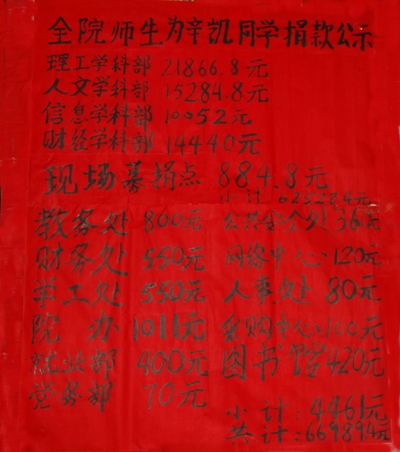 全院师生为辛凯同学捐款公示
理工学科部 21866.8元
人文学科部 15284.8元
信息学科部 10052元
财经学科部 14440元
现场募捐点 884.8元
小计:62528.4元
教务处 800元 公共安全处 360元
财务处 550元 网络中心 120元
学工处 550元 人事处 80元
院办 1011元 采购中心 100元
就业部 400元 图书馆 420元
党务部 70元
小计:4461元
共计:66989.4元